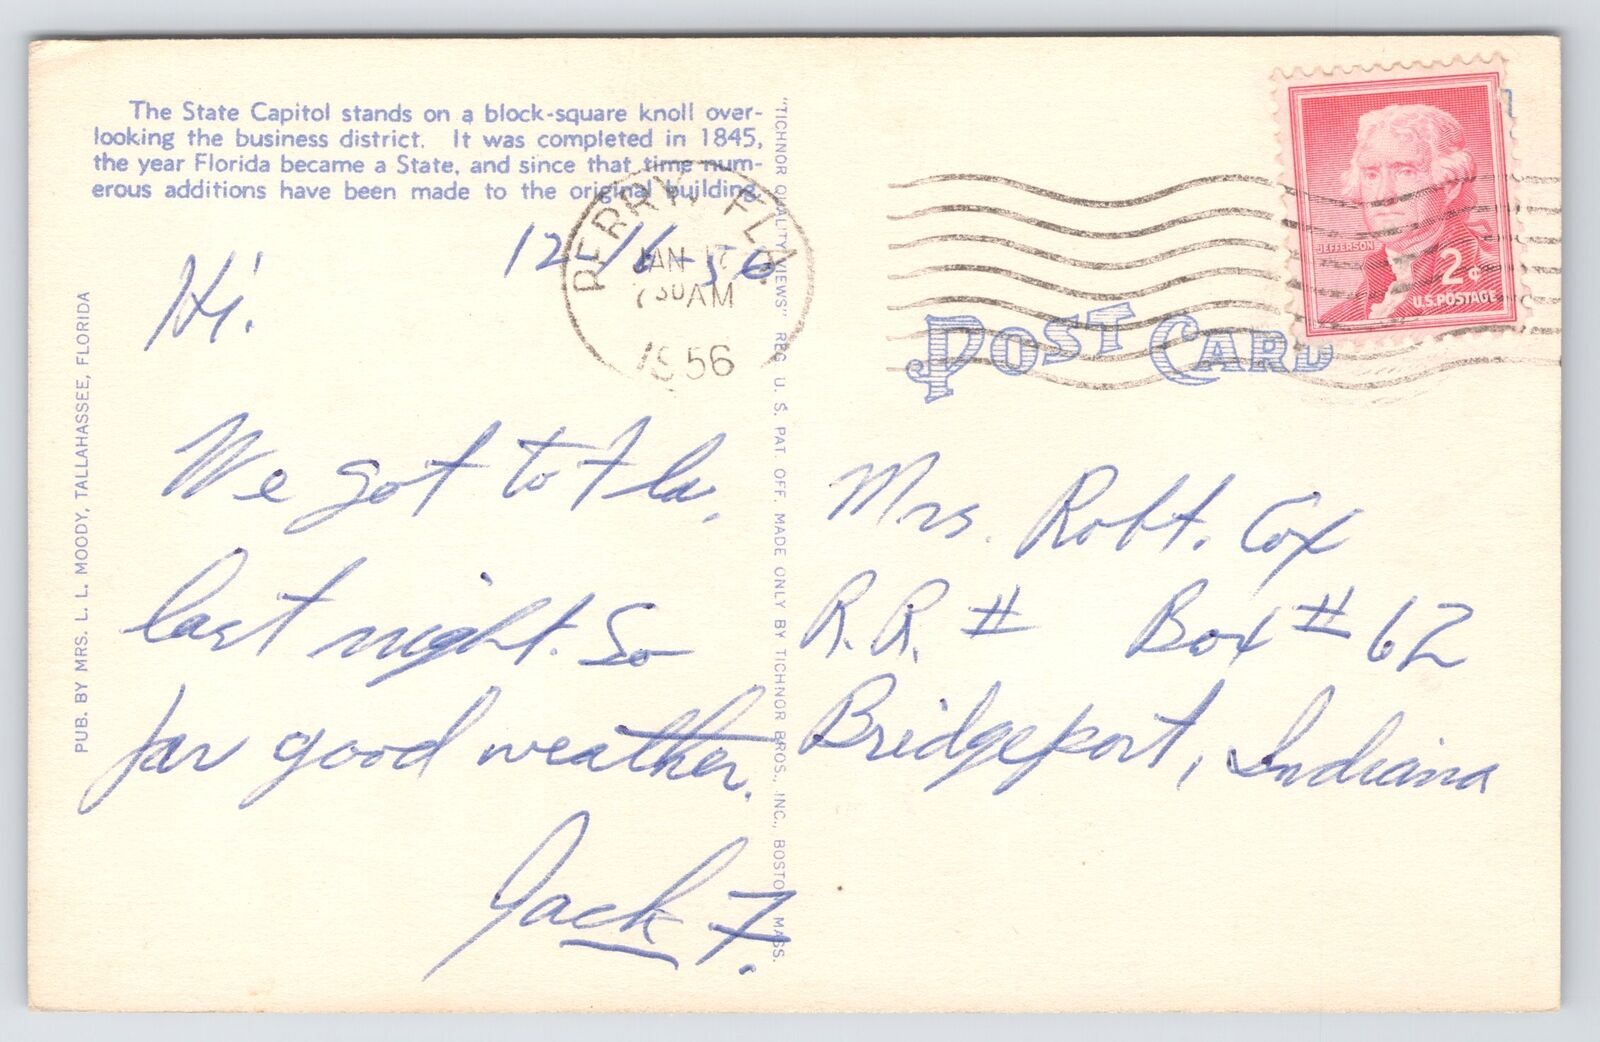 The State Capitol stands on a block-square knoll over-
looking the business district. It was completed in 1845,
the year Florida became a State, and since that time num-
erous additions have been made to the original building.
PERRY, FLA.
JAN 17
7 30 AM
1956
12/16-56
Hi.
We got to Fla.
last night. So
far good weather.
Jack F.
PUB. BY MRS. L. L. MOODY, TALLAHASSEE, FLORIDA
"TICHNOR QUALITY VIEWS" REG. U. S. PAT. OFF. MADE ONLY BY TICHNOR BROS., INC., BOSTON, MASS.
POST CARD
JEFFERSON
2¢
U.S. POSTAGE
Mrs. Robt. Cox
R.R. # Box #62
Bridgeport, Indiana